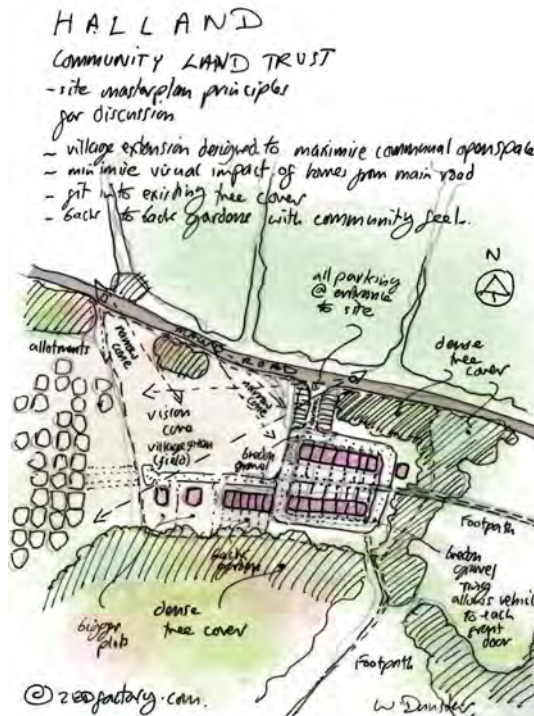 HALLAND
COMMUNITY LAND TRUST
- site masterplan principles
for discussion
~ village extension designed to maximise communal openspace
~ minimise visual impact of homes from main road
- fit into existing tree cover
- back to back gardens with community feel.
N
all parking
@ entrance
to site
MAIN ROAD
dense
tree
cover
allotments
narrow
cone
narrow
cone
vision
cone
village
(field)
bredon
gravel
Footpath
back
garden
bredon
gravel
allows
to each
front
door
bigger
plots
dense
tree cover
Footpath
© zedfactory.com.
W Dunster